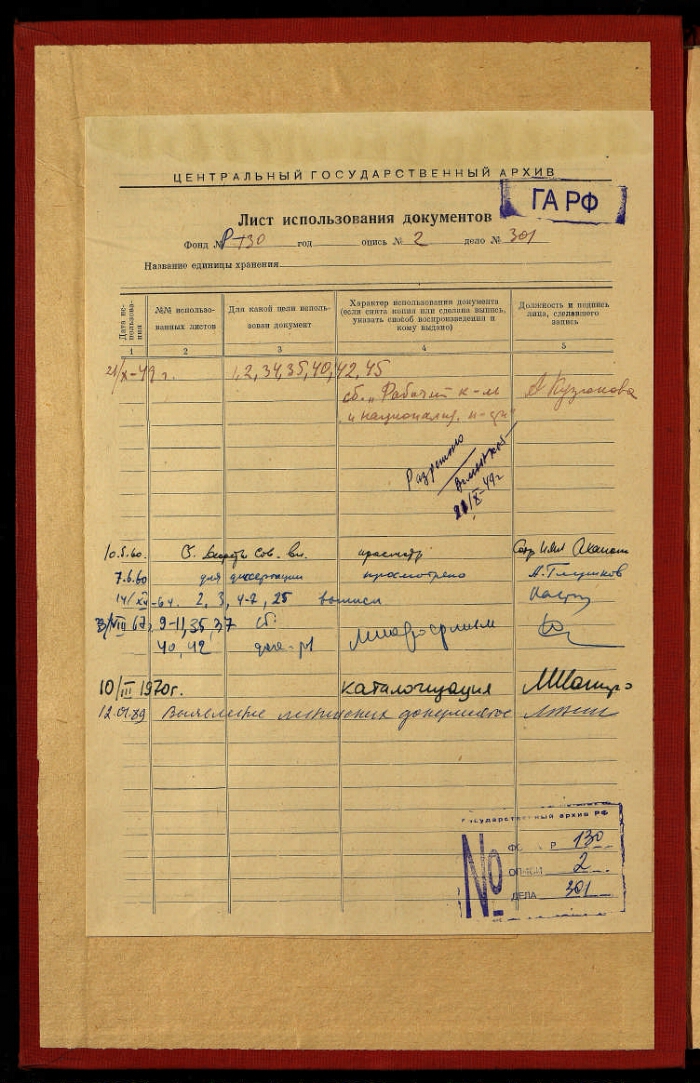 ЦЕНТРАЛЬНЫЙ ГОСУДАРСТВЕННЫЙ АРХИВ
ГА РФ
Лист использования документов
Фонд № Р-130 год опись № 2 дело № 301
Название единицы хранения
Дата использования
№№ использованных листов
Для какой цели использован документ
Характер использования документа (если снята копия или сделана выпись, указать способ воспроизведения и кому выдано)
Должность и подпись лица, сделавшего запись
1 2 3 4 5
21/X-49 г. 1, 2, 34, 35, 40, 42, 45
сб. „Рабочий к-ль А Кузюкова
и национализ.
Разрешено
21/X-49г
10.5.60. Сов. вл. просмотр
7.6.60 для диссертации просмотрено
14/XII-64. 2, 3, 4-7, 25 выписи
VIII 67, 9-11, 35, 37 сб.
40, 42
10/III 1970г. каталогизация МШапиро
12.01.89 Выявление ленинских документов
Государственный архив РФ
№
ФОНД Р 130
ОПИСИ 2
ДЕЛА 301